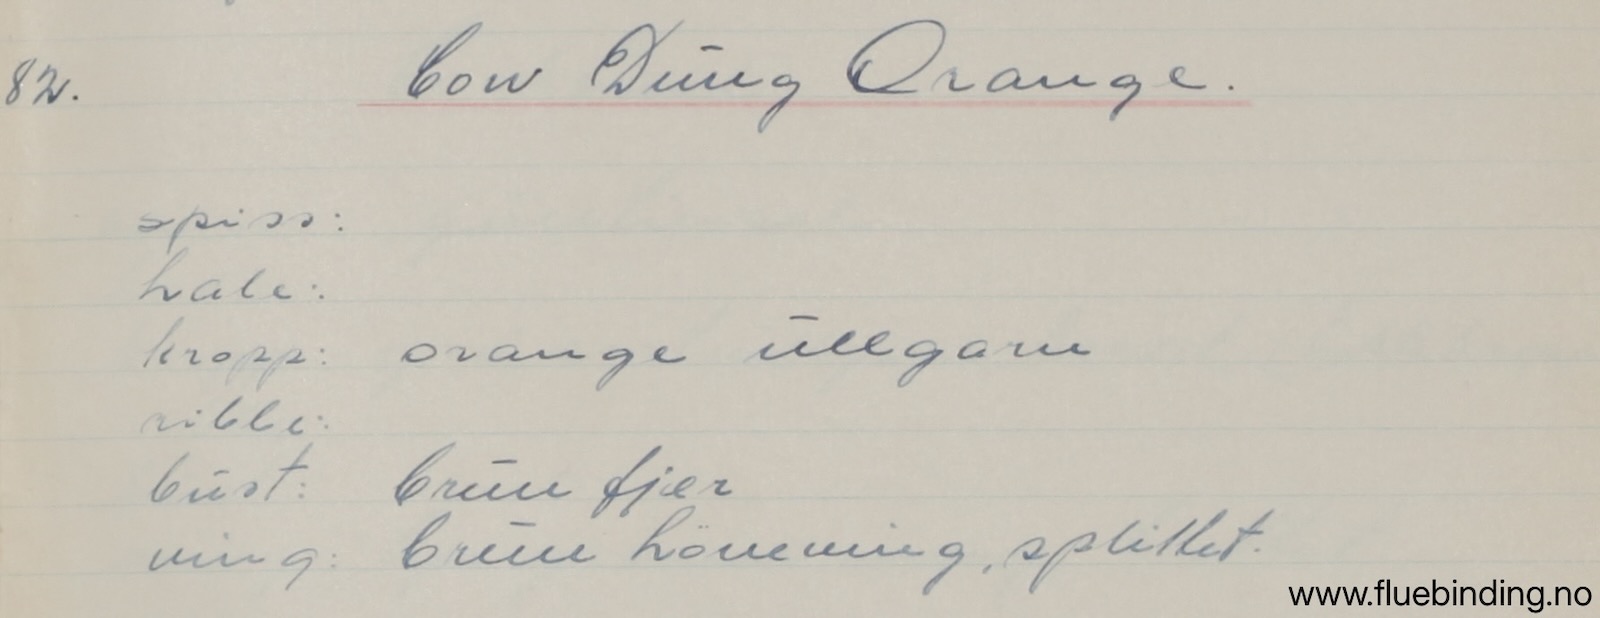 82. Cow Dung Orange.
spiss:
hale:
kropp: orange ullgarn
ribbe:
bust: brun fjær
ving: brun hönseving, splittet.
www.fluebinding.no